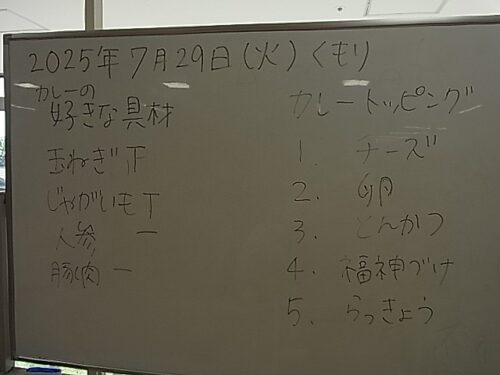 2025年7月29日(火)くもり
カレーの
好きな具材
玉ねぎ 正
じゃがいも T
人参 一
豚肉 一
カレートッピング
1. チーズ
2. 卵
3. とんかつ
4. 福神づけ
5. らっきょう